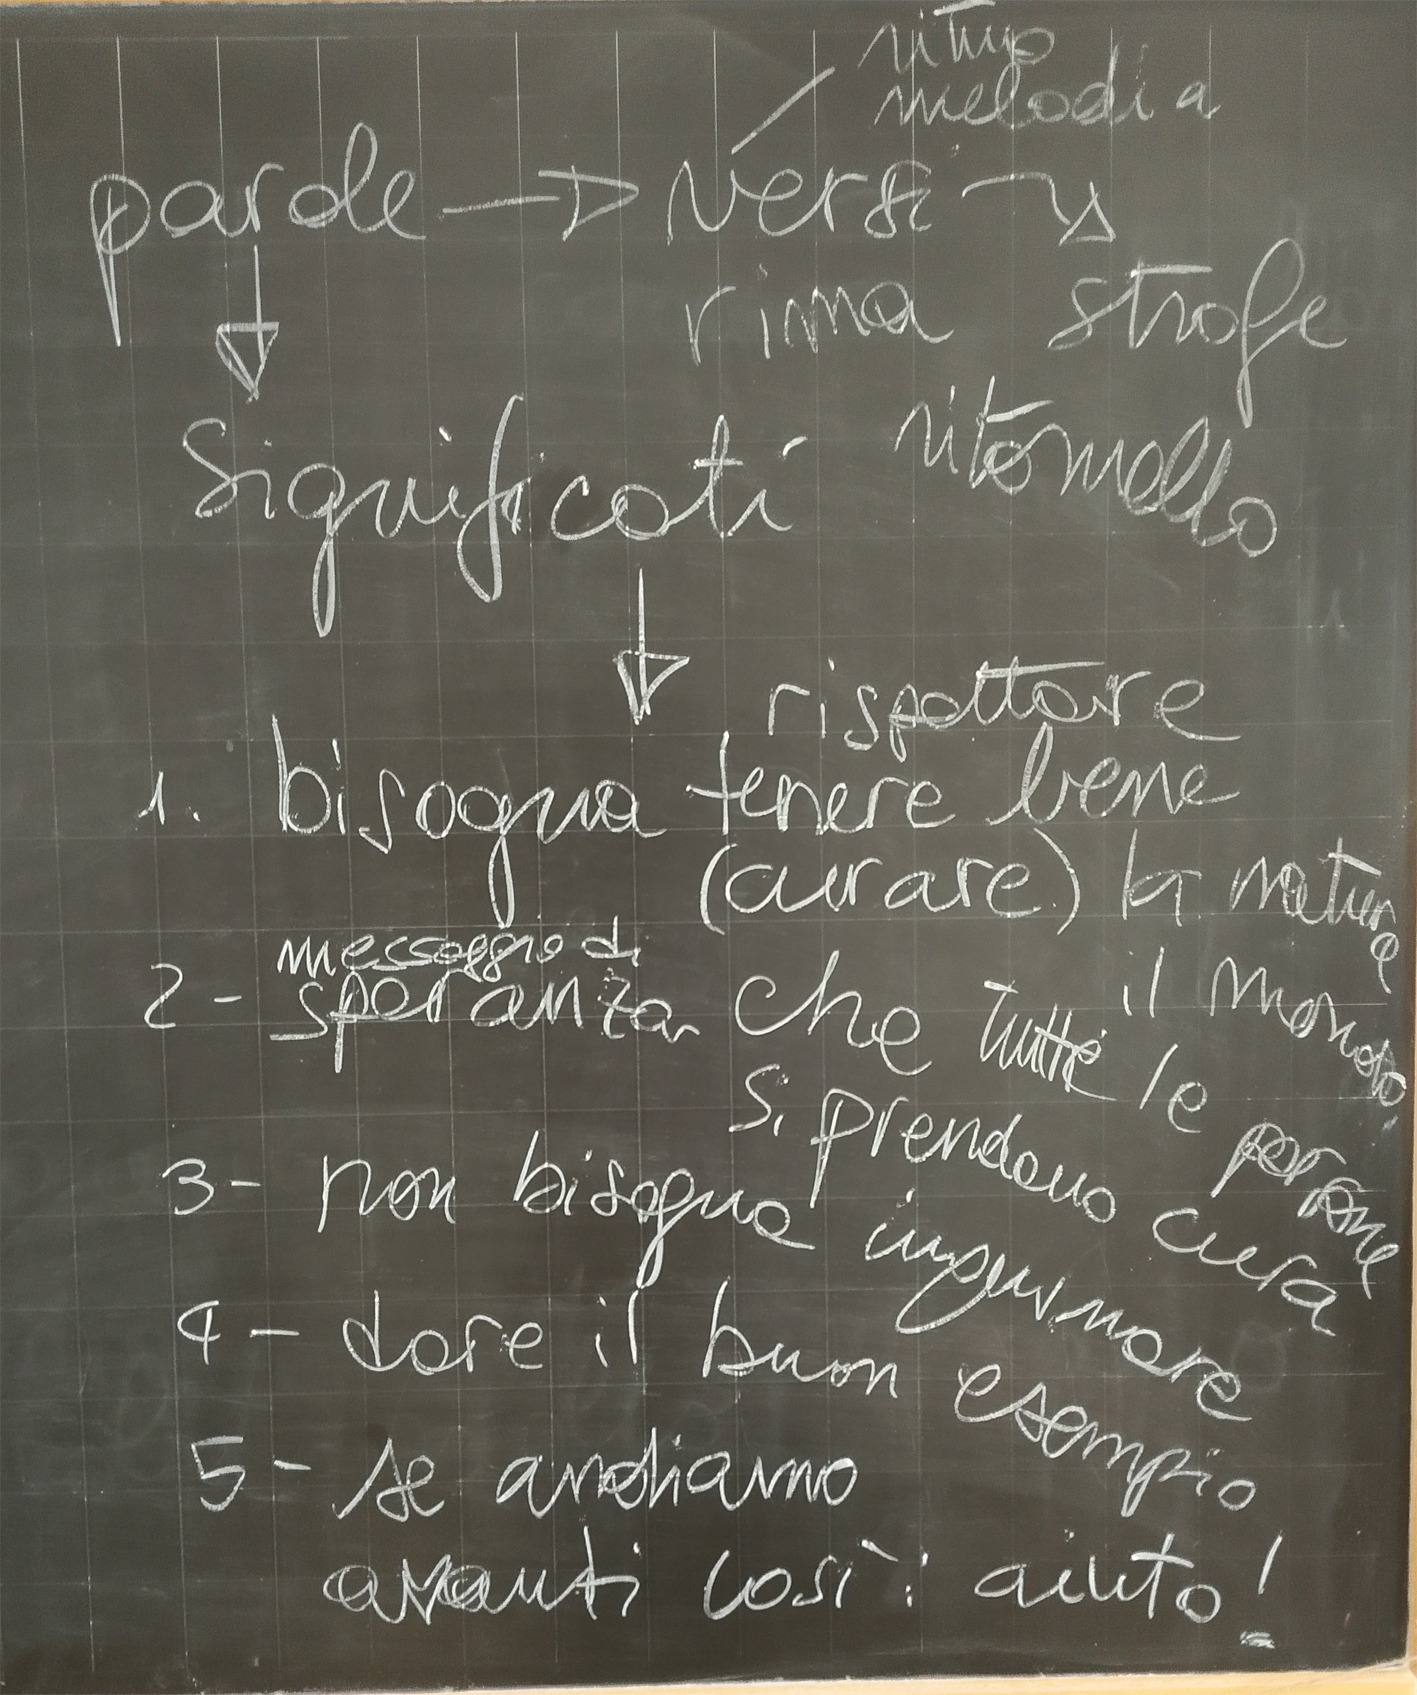 ritmo
melodia
parole → versi →
rima strofe
significati ritornello
rispettare
1. bisogna tenere bene
(curare) la natura
il mondo
messaggio di
2- speranza che tutte le persone
si prendano cura
3- non bisogna inquinare
4- dare il buon esempio
5- se andiamo
avanti così: aiuto!